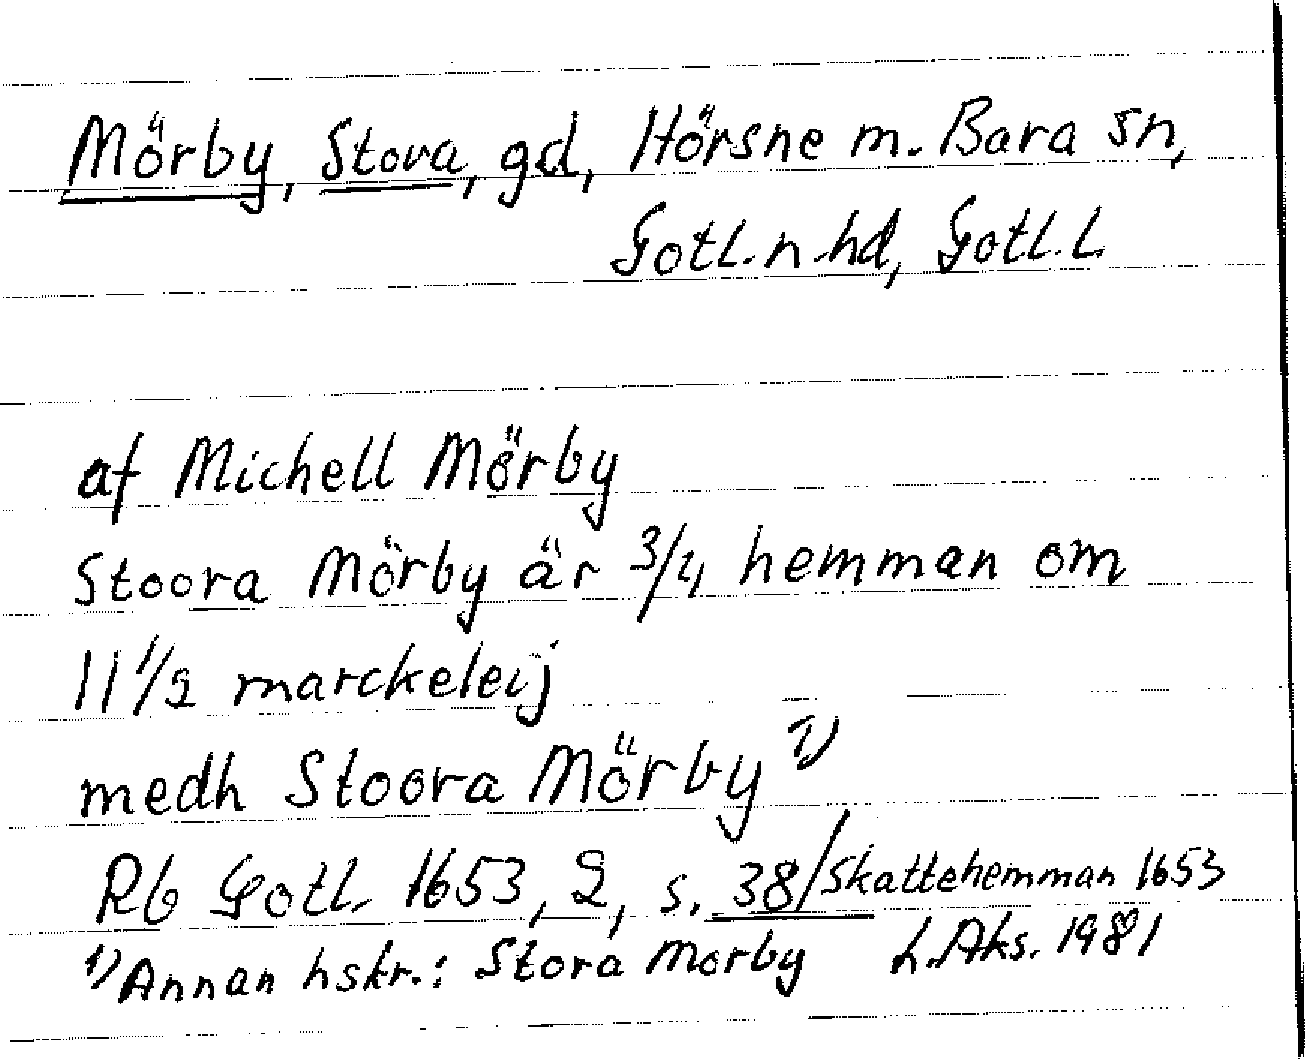 Mörby, Stora, gd, Hörsne m. Bara sn,
Gotl. n. hd, Gotl. l.
af Michell Mörby
Stoora Mörby är 3/4 hemman om
11 1/2 marckeleij
medh Stoora Mörby 1)
Rb Gotl. 1653, 2, s. 38/Skattehemman 1653
1) Annan hskr.: Stora Morby L.Aks. 1981